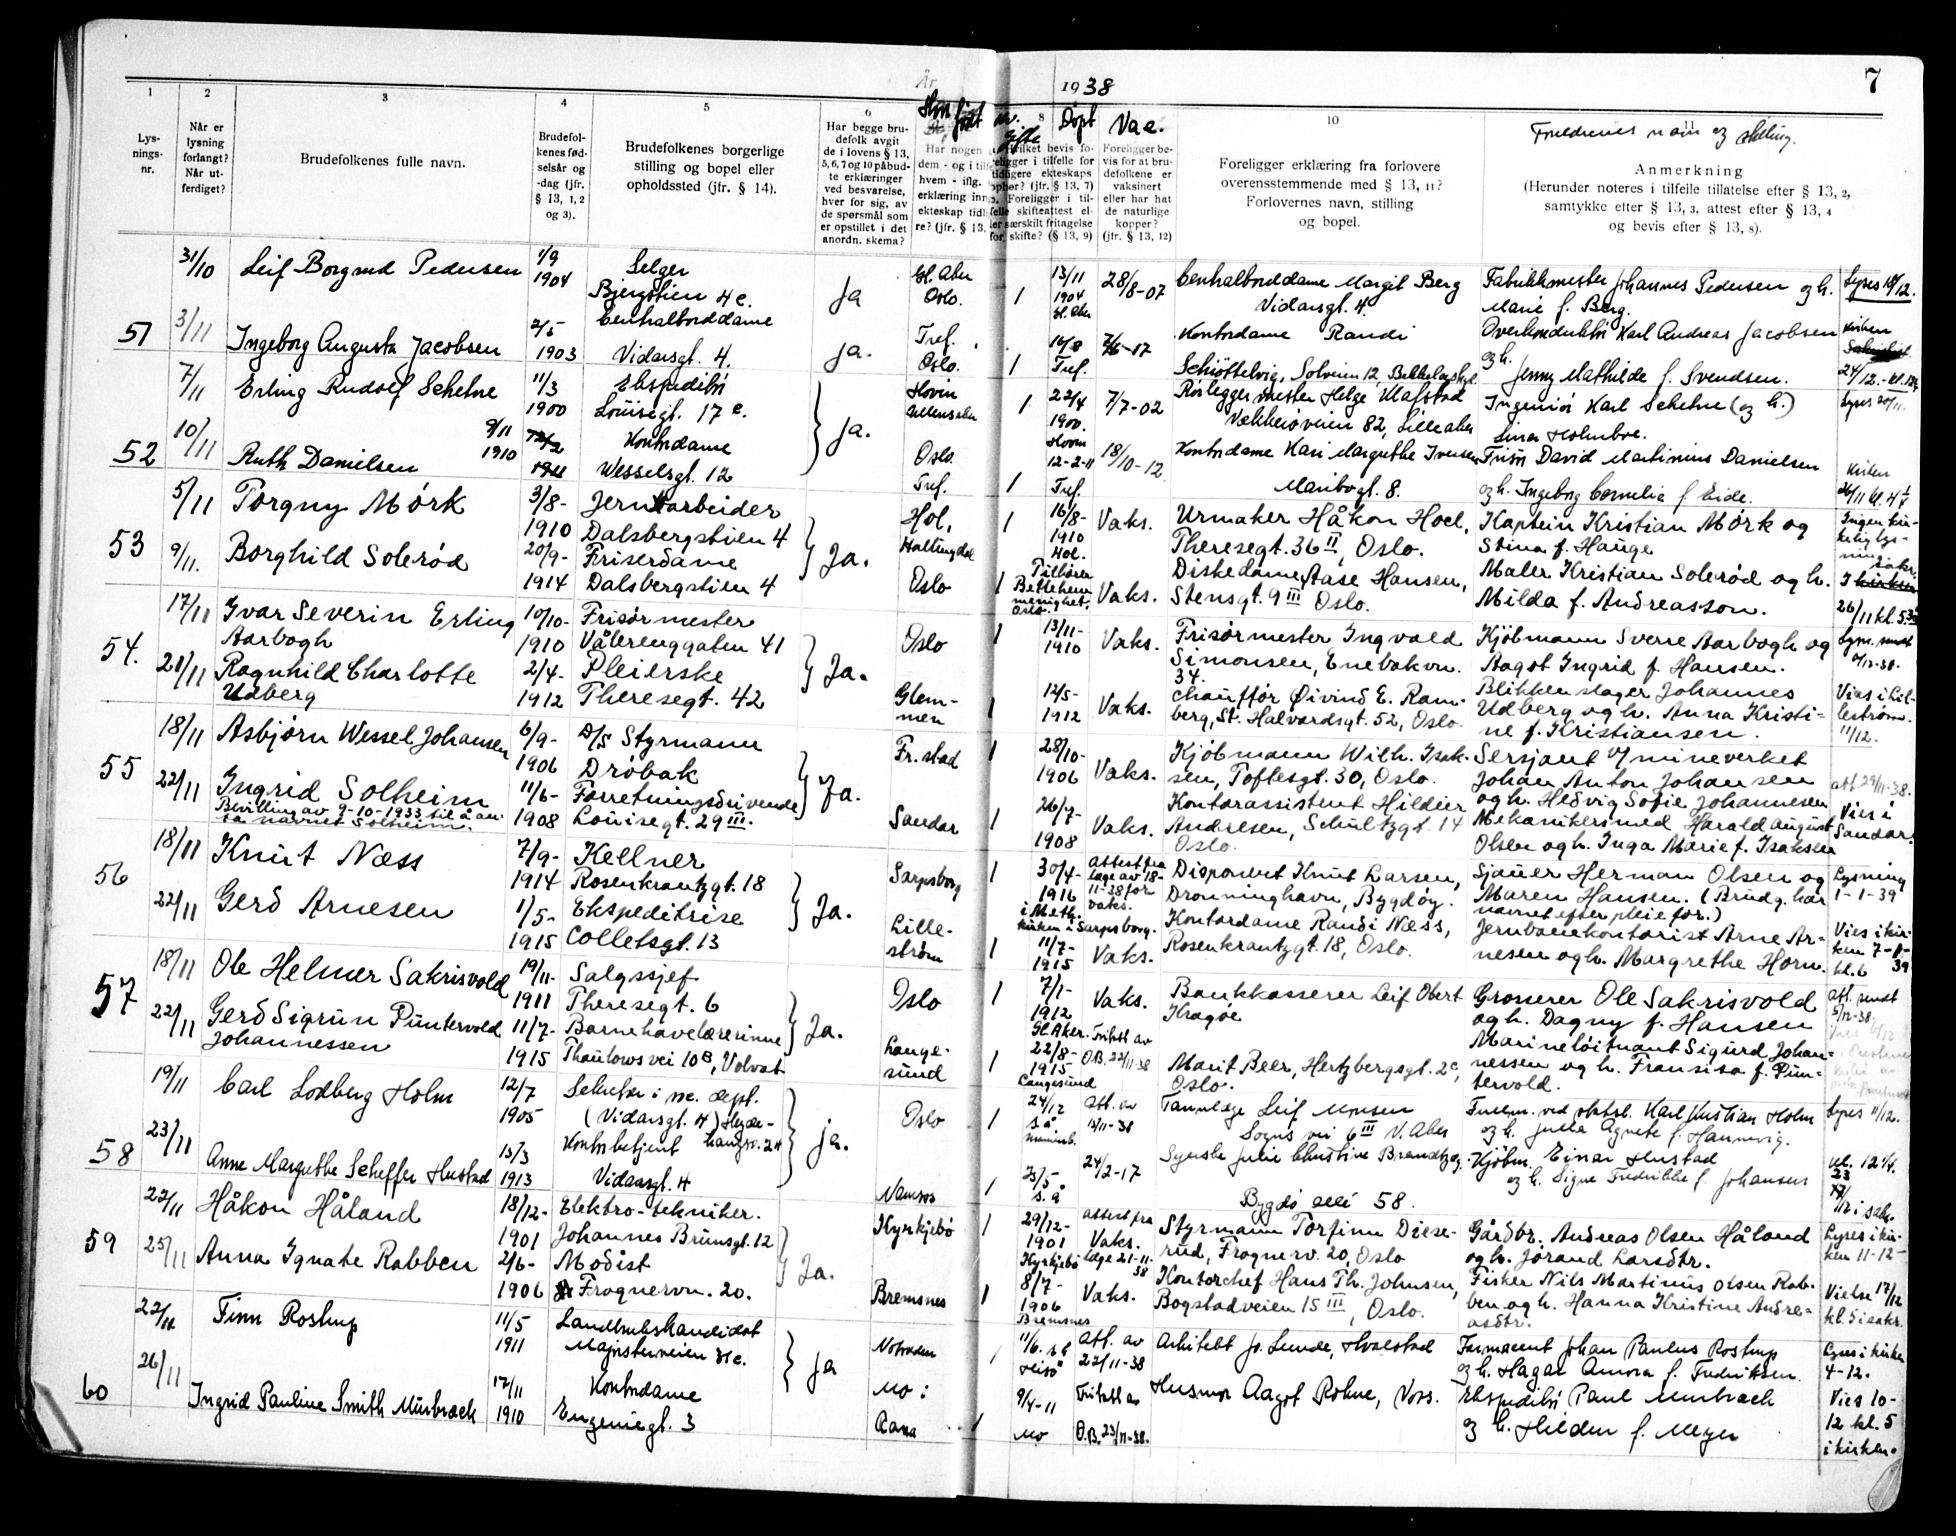 År 1938
7
1
2
3
4
5
6
8
10
11
Lys-
nings-
nr.
Når er
lysning
forlangt?
Når ut-
ferdiget?
Brudefolkenes fulle navn.
Brudefol-
kenes fød-
selsår og
-dag (jfr.
§ 13, 1, 2
og 3).
Brudefolkenes borgerlige
stilling og bopel eller
opholdssted (jfr. § 14).
Har begge bru-
defolk avgit
de i lovens § 13,
5, 6, 7 og 10 påbud-
te erklæringer
ved besvarelse,
hver for sig, av
de spørsmål som
er opstillet i det
anordn. skema?
Hvor født
Har nogen
dem - og i tilf
hvem - iflg.
erklæring inn
ekteskap tidl
re? (jfr. § 13,
Gifte
Døpt
Hvilket bevis fo-
religger i tilfelle for
tidligere ekteskaps
ophør? (jfr. § 13, 7)
Foreligger i til-
felle skifteattest el-
ler særskilt fritagelse
for skifte? (§ 13, 9)
Vac.
Foreligger be-
vis for at bru-
defolkene er
vaksinert
eller har hat
de naturlige
kopper?
(jfr. § 13, 12)
Foreligger erklæring fra forlovere
overensstemmende med § 13, 11?
Forlovernes navn, stilling
og bopel.
Foreldrenes navn og stilling.
Anmerkning
(Herunder noteres i tilfelle tillatelse efter § 13, 2,
samtykke efter § 13, 3, attest efter § 13, 4
og bevis efter § 13, 8).
31/10 Leif Borgund Pedersen 1/9 Selger Gl. Aker 13/11 28/8-07 Centralborddame Margit Berg Fabrikkmester Johannes Pedersen og h.
1904 Bjergstien 4c. ja Oslo. 1 1904 Vidarsgt. 4. Marie f. Berg.
3/11 Centralborddame Gl. Aker
51 Ingeborg Augusta Jacobsen 2/5 Tref. 16/8 Kontordame Randi Overkonduktør Karl Andreas Jacobsen Kirken
1903 Vidarsgt. 4. ja. Oslo. 1 Tref. Schiøttelvig, Solveien 12, og h. Jenny Mathilde f. Svendsen.
7/11 Erling Rudolf Schelne 11/3 Ekspeditør Hovin 22/4 7/7-02 Rørleggermester Helge Klafstad Ingeniør Karl Schelne (og h.)
1900 Louisegt. 17c. ja. 1 1900. Vækkerøveien 82, Lilleaker Lina Holmboe.
10/11 9/11 1910 Kontordame Hovin
52 Ruth Danielsen Wesselsgt. 12 Oslo. 12-2-11 18/10-12. Kontordame Kari Margrethe Iversen Frisør David Martinius Danielsen Kirken
Tref. 1 Tref. Maribogt. 8. og h. Ingeborg Cornelia f. Eide.
5/11 Torgny Mørk 3/8- Jernarbeider Hol, 1 16/8- Vaks. Urmaker Håkon Hoel, Kaptein Kristian Mørk og Ingen kir-
53 1910 Dalsbergstien 4 Hallingdal 1910 Theresegt. 36 II, Oslo. Stina f. Hauge kelig lys-
9/11. Borghild Solerød 20/9- Friserdame Ja. Hol. Diskedame Aase Hansen, Maler Kristian Solerød og h. ning
1914 Dalsbergstien 4 Oslo 1 Tilhører Betlehem menighet, Oslo. Vaks. Stensgt. 9 III Oslo. Milda f. Andreasson. 26/11 kl. 5.30
17/11 Ivar Severin Erling 10/10- Frisørmester 13/11- Vaks. Frisørmester Ingvald Kjøbmann Sverre Aarbogh og
54. Aarbogh 1910 Vålerenggaten 41 Oslo 1 1910 Simonsen, Enebakvn. 34. Aagot Ingrid f. Hansen.
21/11 Ragnhild Charlotte 2/4- Pleierske Ja. Glem- 12/5- Vaks. Chauffør Øivind E. Ram- Blikkenslager Johannes Vies i Lil-
Udberg 1912 Theresegt. 42 men 1 1912 berg, St. Halvardsgt. 52, Oslo. Udberg og h. Anna Kristi- lestrøm.
ne f. Kristiansen. 11/12.
18/11 Asbjørn Wessel Johansen 6/9- D/S Styrmann Fr.stad 1 28/10- Vaks. Kjøbmann Wilh. Isak- Sersjant v/ mineverket
55 1906 Drøbak 1906 sen, Toftesgt. 30, Oslo. Johan Anton Johansen att. 29/11-38.
22/11 Ingrid Solheim 11/6- Forretningsdrivende Ja. 26/7- Kontorassistent Hildur og h. Hedvig Sofie Johannesen Vies i
Bevilling av 9-10-1933 til å an- ta navnet Solheim. 1908 Louisegt. 29 III. Sandar 1 1908 Vaks. Andresen, Schultzgt. 14 Oslo. Mekanikersmed Harald August Sandar.
Olsen og h. Inga Marie f. Isaksen
18/11 Knut Næss 7/9- Kellner Sarpsborg 1 30/4- attest fra Disponent Knut Larsen, Sjauer Herman Olsen og Lysning
56 1914 Rosenkrantzgt. 18 1916 læge av 18-11-38 for vaks. Dronninghavn, Bygdøy. Maren Hansen. (Brudg. har navnet efter pleiefor.) 1-1-39
22/11 Gerd Arnesen 1/5- Ekspeditrise Ja. Lille- i Meth. kirken i Sarpsborg. Kontordame Randi Næss, Jernbanekontorist Arne Ar- Vies i kir-
1915 Colletsgt. 13 strøm 1 11/7- 1915 Vaks. Rosenkrantzgt. 18, Oslo. nesen og h. Margrethe Horn. ken 7-1-39 kl. 6
18/11 Ole Helmer Sakrisvold 19/11- Salgssjef Oslo 1 7/1- Vaks. Bankkasserer Leif Obert Grosserer Ole Sakrisvold att. sendt
57 1911 Theresegt. 6 1912 Kragøe og h. Dagny f. Hansen 5/12-38.
22/11 Gerd Sigrun Puntervold 11/7- Barnehavelærerinne Ja. Lange- Gl. Aker. Fritatt av Marineløitnant Sigurd Johan-
Johannessen 1915 Thaulows vei 10B, Volvat sund 1 22/8- 1915 Langesund O.B. 22/11-38 Marit Beer, Hertzbergsgt. 2c, Oslo. nessen og h. Fransisa f. Pun- tervold.
19/11 Carl Lodberg Holm 12/7 Sekretær i soc. dept. 24/12 att. av Tannlæge Leif Monsen Fullm. ved statsb. Karl Kristian Holm Lyses 11/12.
1905 (Vidarsgt. 4) Oslo 1 s.å. Sogns vei 6 III V. Aker og h. Julla Agnete f. Hannevig.
58 23/11 Kontorbetjent ja.
Anne Margrethe Scheffer Hustad 13/3 1913 Vidarsgt. 4 Namsos 1 23/5- s.å 24/2-17 Julie Christine Brandtzæg. Bygdø allé 58. Kjøbm. Einar Hustad og h. Signe Fredrikke f. Johansen
22/11 Håkon Håland 18/12- Elektro-tekniker. Kyrkjebø 1 29/12- attest fra Styrmann Torfinn Diese- Gårdbr. Andreas Olsen Håland Lyses i kir-
59 1901 Johannes Brunsgt. 12 1901 Vaks. rud, Frognerv. 20, Oslo og h. Jorand Larsdtr. ken 11-12-
25/11 Anna Ignate Rabben 2/6- Modist Ja. Kyrkjebø læge 21-11-38 Kontorchef Hans Th. Johnsen, Fisker Nils Martinus Olsen Rab- Vielse 17/12
1906 Frognervn. 20. Bremsnes 1 8/7- 1906 Bremsnes Vaks. Bogstadveien 15 III, Oslo. ben og h. Hanna Kristine Andre- asdtr. kl. 5 i sakr.
22/11 Finn Rostrup 11/5 Landbrukskandidat Notodden 11/6. att. av Arkitekt Jo. Lunde, Hvalstad Farmaceut Johan Paulus Rostrup Lyses i kirken
1911 Majorstuveien 31c. ja 1 22/11-38 og h. Hagar Aurora f. Fredriksen. 4-12.
26/11 Mo i
60 Ingrid Pauline Smith Murbræck 17/11 Kontordame Rana 1 9/4-11 Fritatt av Husmor Aagot Rohne, Vors. Ekspeditør Paul Murbræch Vies 10-
1910 Eugeniegt. 3 Mo O.B. 23/11-38. og h. Hildur f. Meyer 12 kl. 5
i kirken.